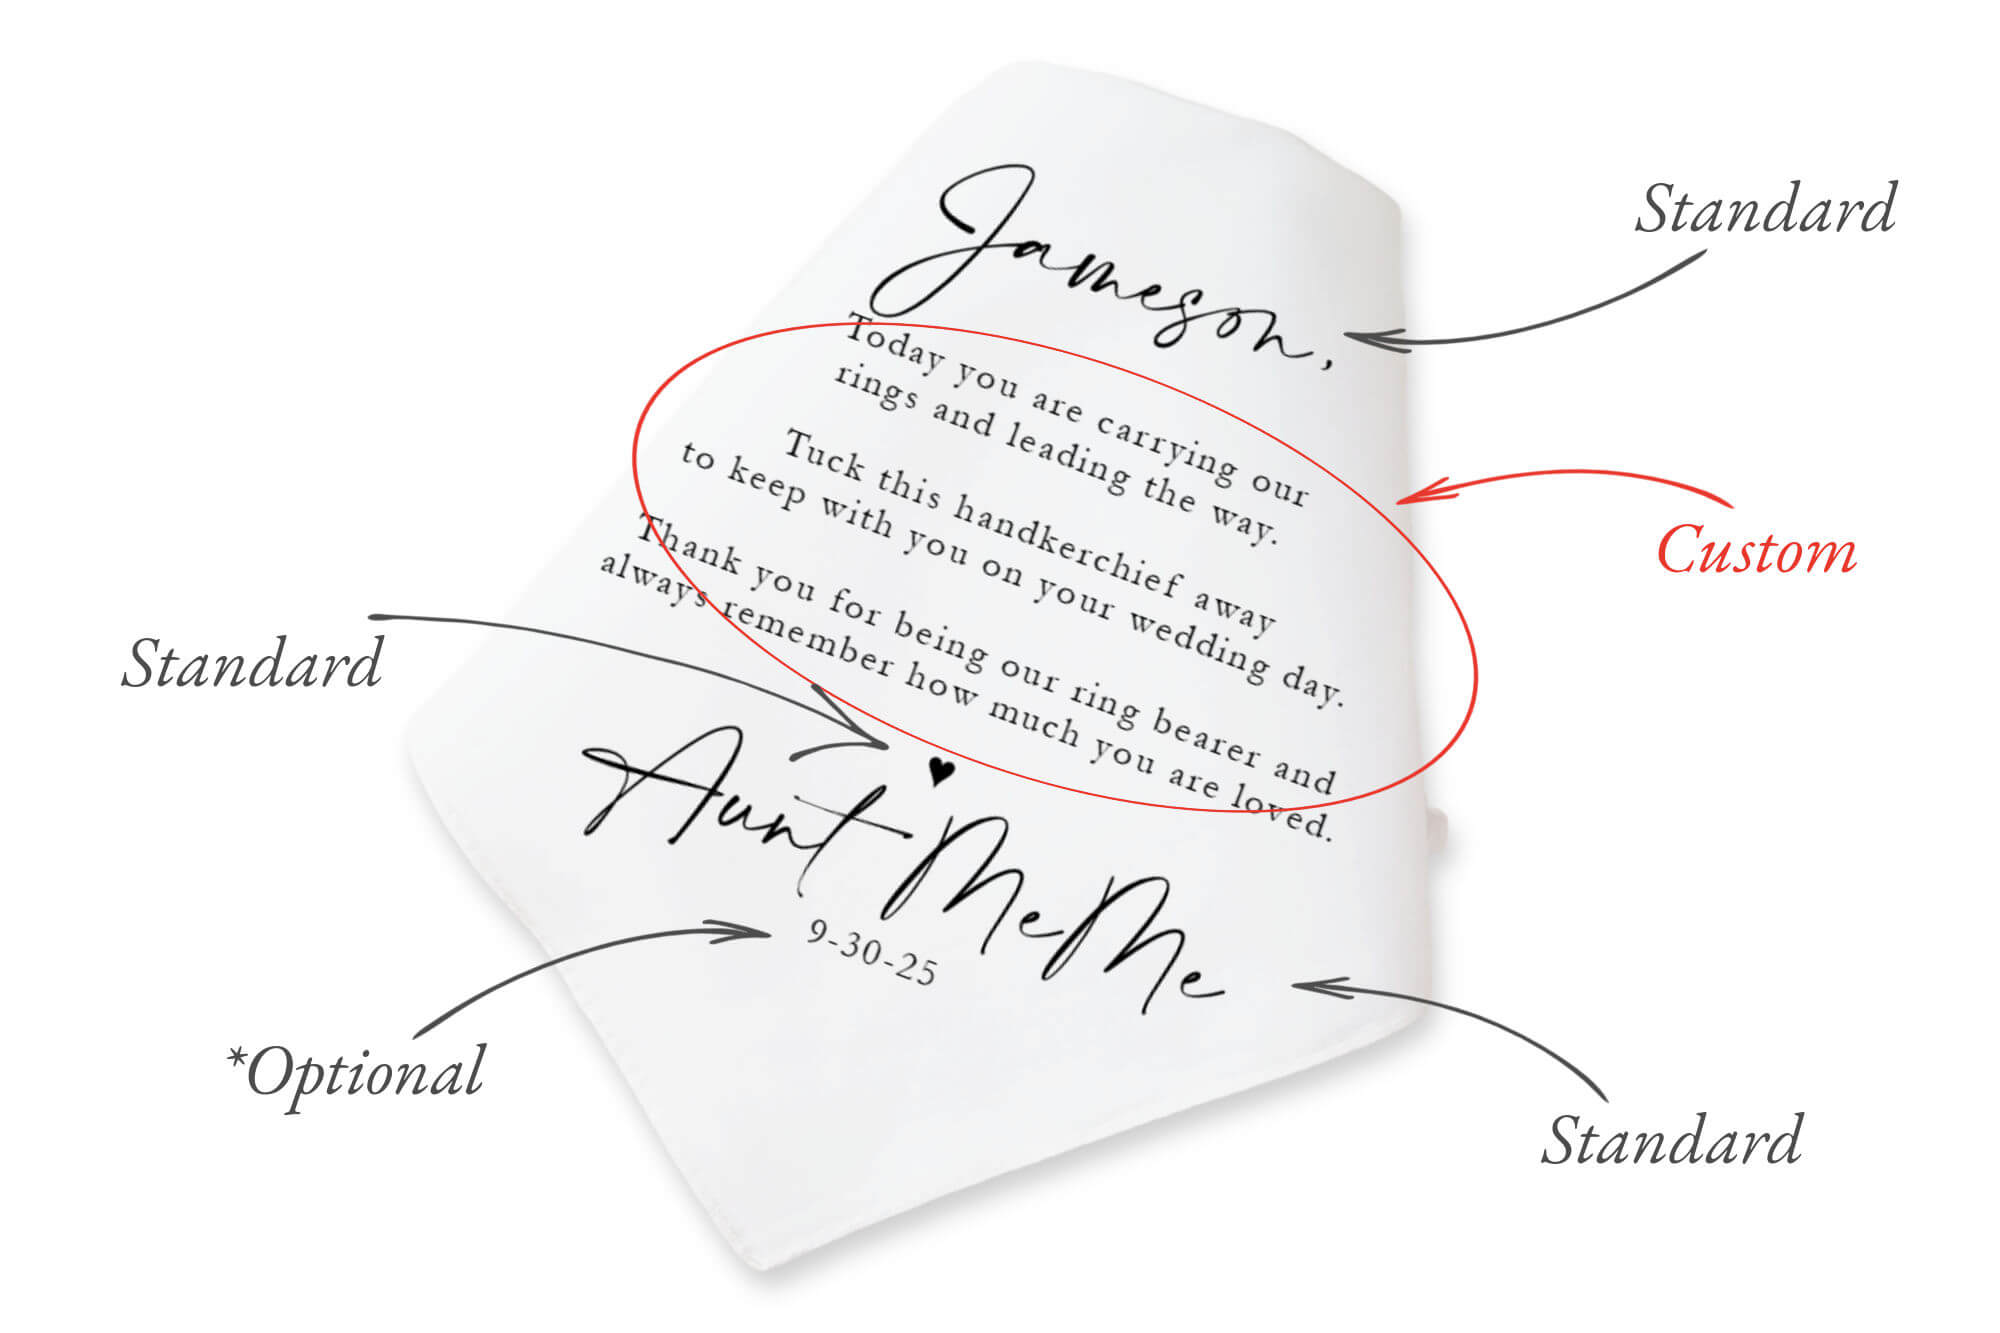 Jameson,
Standard
Today you are carrying our
rings and leading the way.
Custom
Tuck this handkerchief away
to keep with you on your wedding day.
Thank you for being our ring bearer and
always remember how much you are loved.
Standard
♥
Aunt MeMe
9-30-25
*Optional
Standard